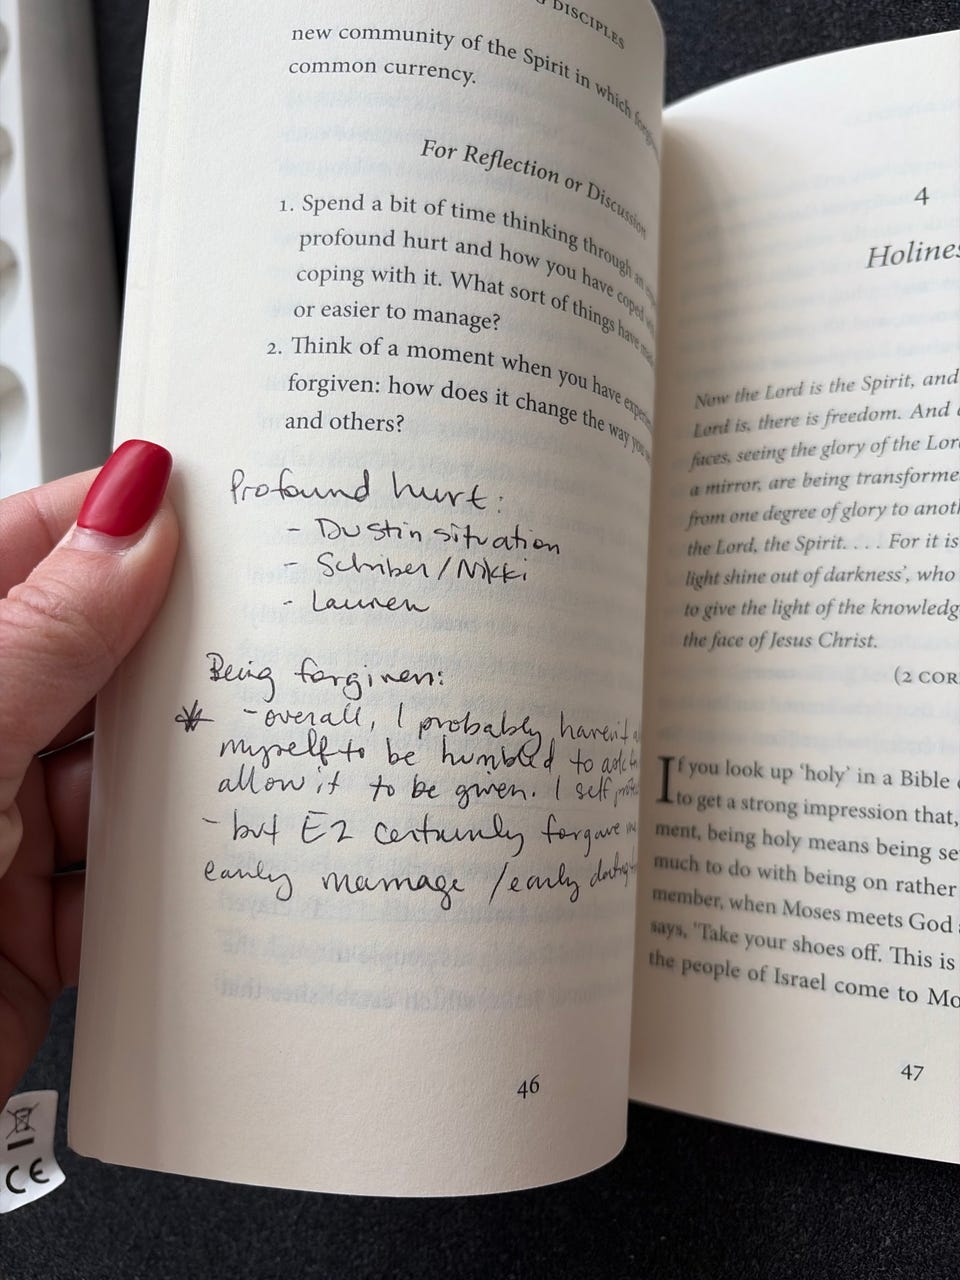 DISCIPLES
new community of the Spirit in which
common currency.
For Reflection or Discussion
1. Spend a bit of time thinking through an
profound hurt and how you have coped
coping with it. What sort of things have
or easier to manage?
2. Think of a moment when you have
forgiven: how does it change the way you
and others?
Profound hurt:
- Dustin situation
- Schiber/Nikki
- Lauren
Being forgiven:
* - overall, I probably haven't
myself to be humbled to ask
allow it to be given. I self
- but E2 certainly forgave me
early marriage / early dating
46
4
Now the Lord is the Spirit, and
Lord is, there is freedom. And
faces, seeing the glory of the
a mirror, are being
from one degree of glory to
the Lord, the Spirit. . . . For it is
light shine out of darkness', who
to give the light of the
the face of Jesus Christ.
(2 COR
If you look up 'holy' in a Bible
to get a strong impression that,
being holy means being
much to do with being on rather
member, when Moses meets God
says, 'Take your shoes off. This is
the people of Israel come to
47
CE